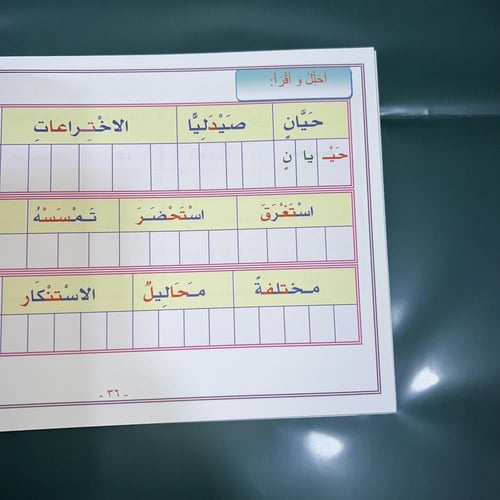 أحلّل و أقرأ:
حَيَّانٍ صَيْدَلِيًّا الاخْتِراعاتِ
حَيْـ يا نٍ
اسْتَغْرَقَ اسْتَحْضَرَ تَمْسَسْهُ
مختلفةً مَحَاليلٌ الاسْتنْكَار
- ٣٦ -